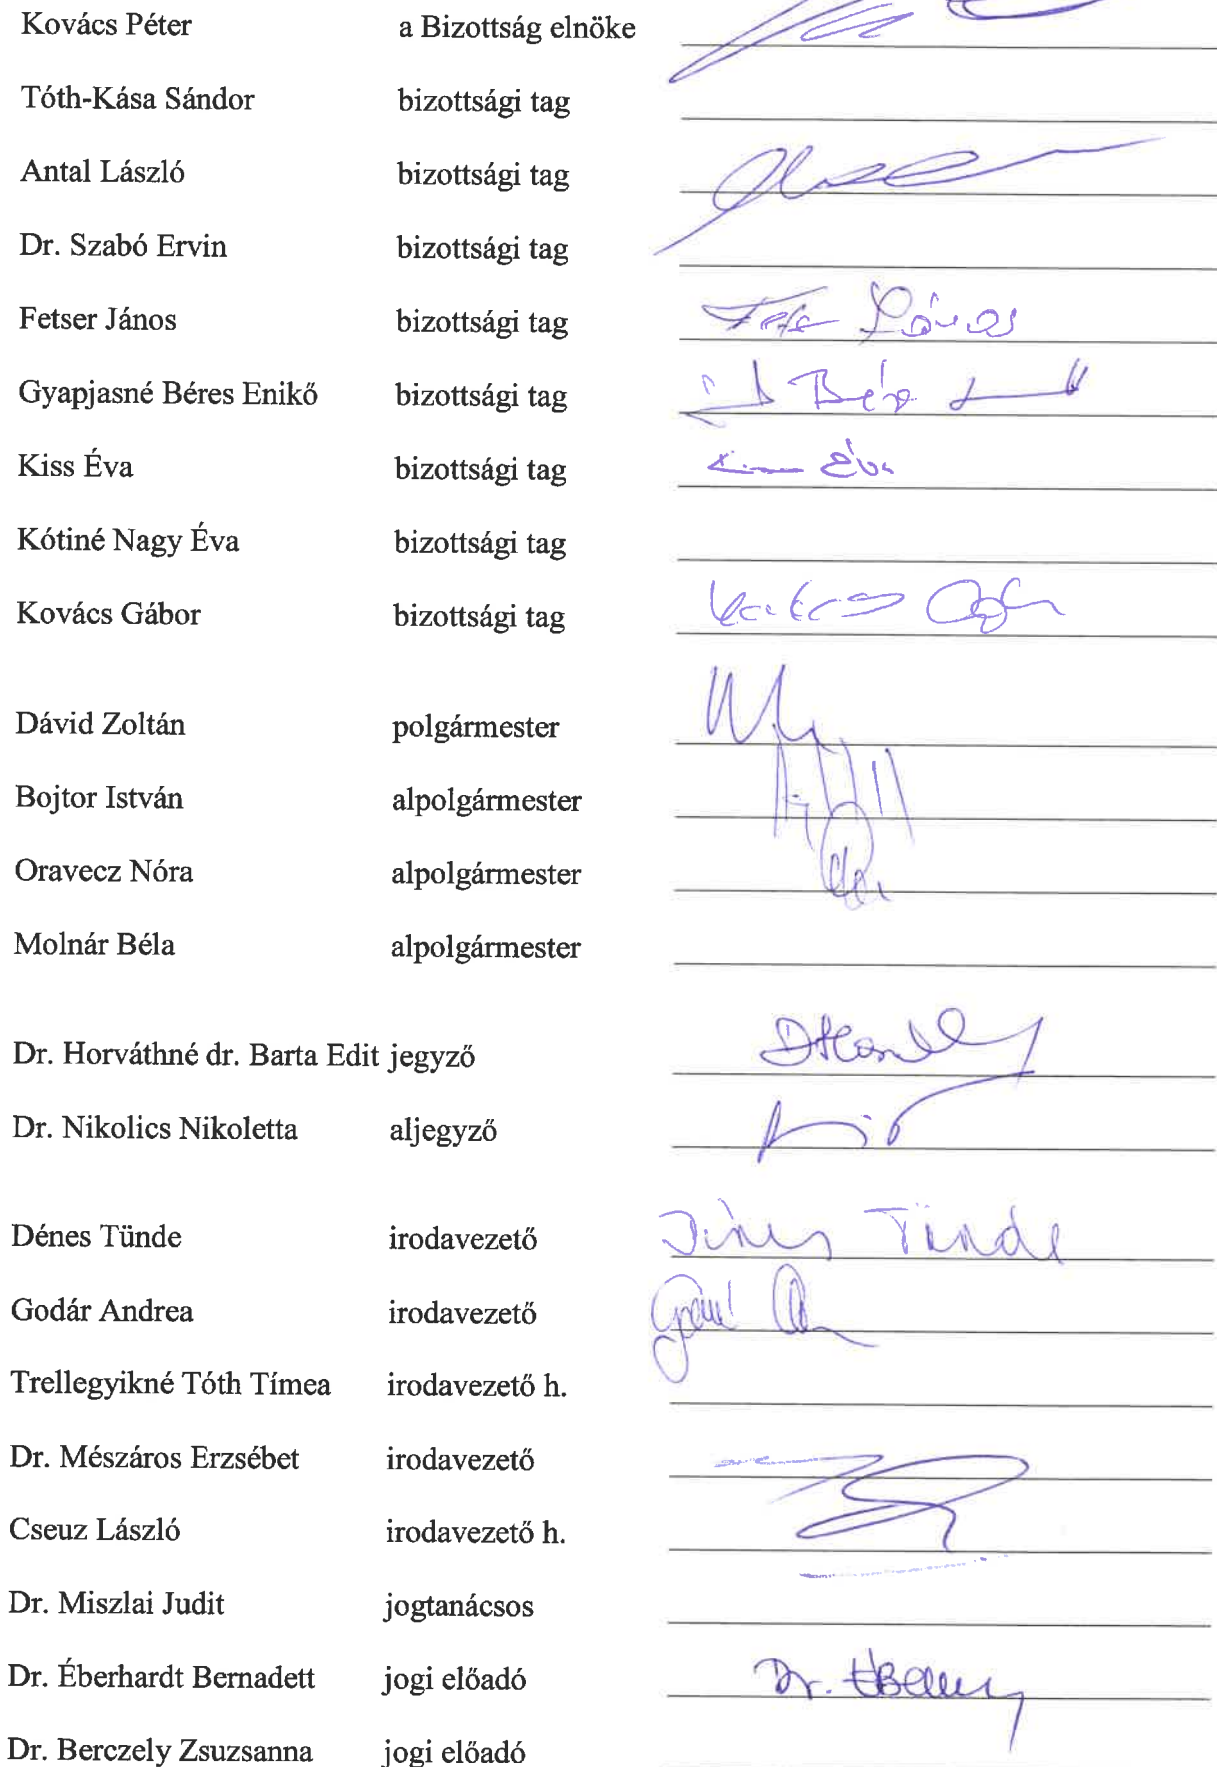 Kovács Péter a Bizottság elnöke
Tóth-Kása Sándor bizottsági tag
Antal László bizottsági tag
Dr. Szabó Ervin bizottsági tag
Fetser János bizottsági tag
Gyapjasné Béres Enikő bizottsági tag
Kiss Éva bizottsági tag Éva
Kótiné Nagy Éva bizottsági tag
Kovács Gábor bizottsági tag
Dávid Zoltán polgármester
Bojtor István alpolgármester
Oravecz Nóra alpolgármester
Molnár Béla alpolgármester
Dr. Horváthné dr. Barta Edit jegyző
Dr. Nikolics Nikoletta aljegyző
Dénes Tünde irodavezető Dénes Tünde
Godár Andrea irodavezető
Trellegyikné Tóth Tímea irodavezető h.
Dr. Mészáros Erzsébet irodavezető
Cseuz László irodavezető h.
Dr. Miszlai Judit jogtanácsos
Dr. Éberhardt Bernadett jogi előadó Dr.
Dr. Berczely Zsuzsanna jogi előadó